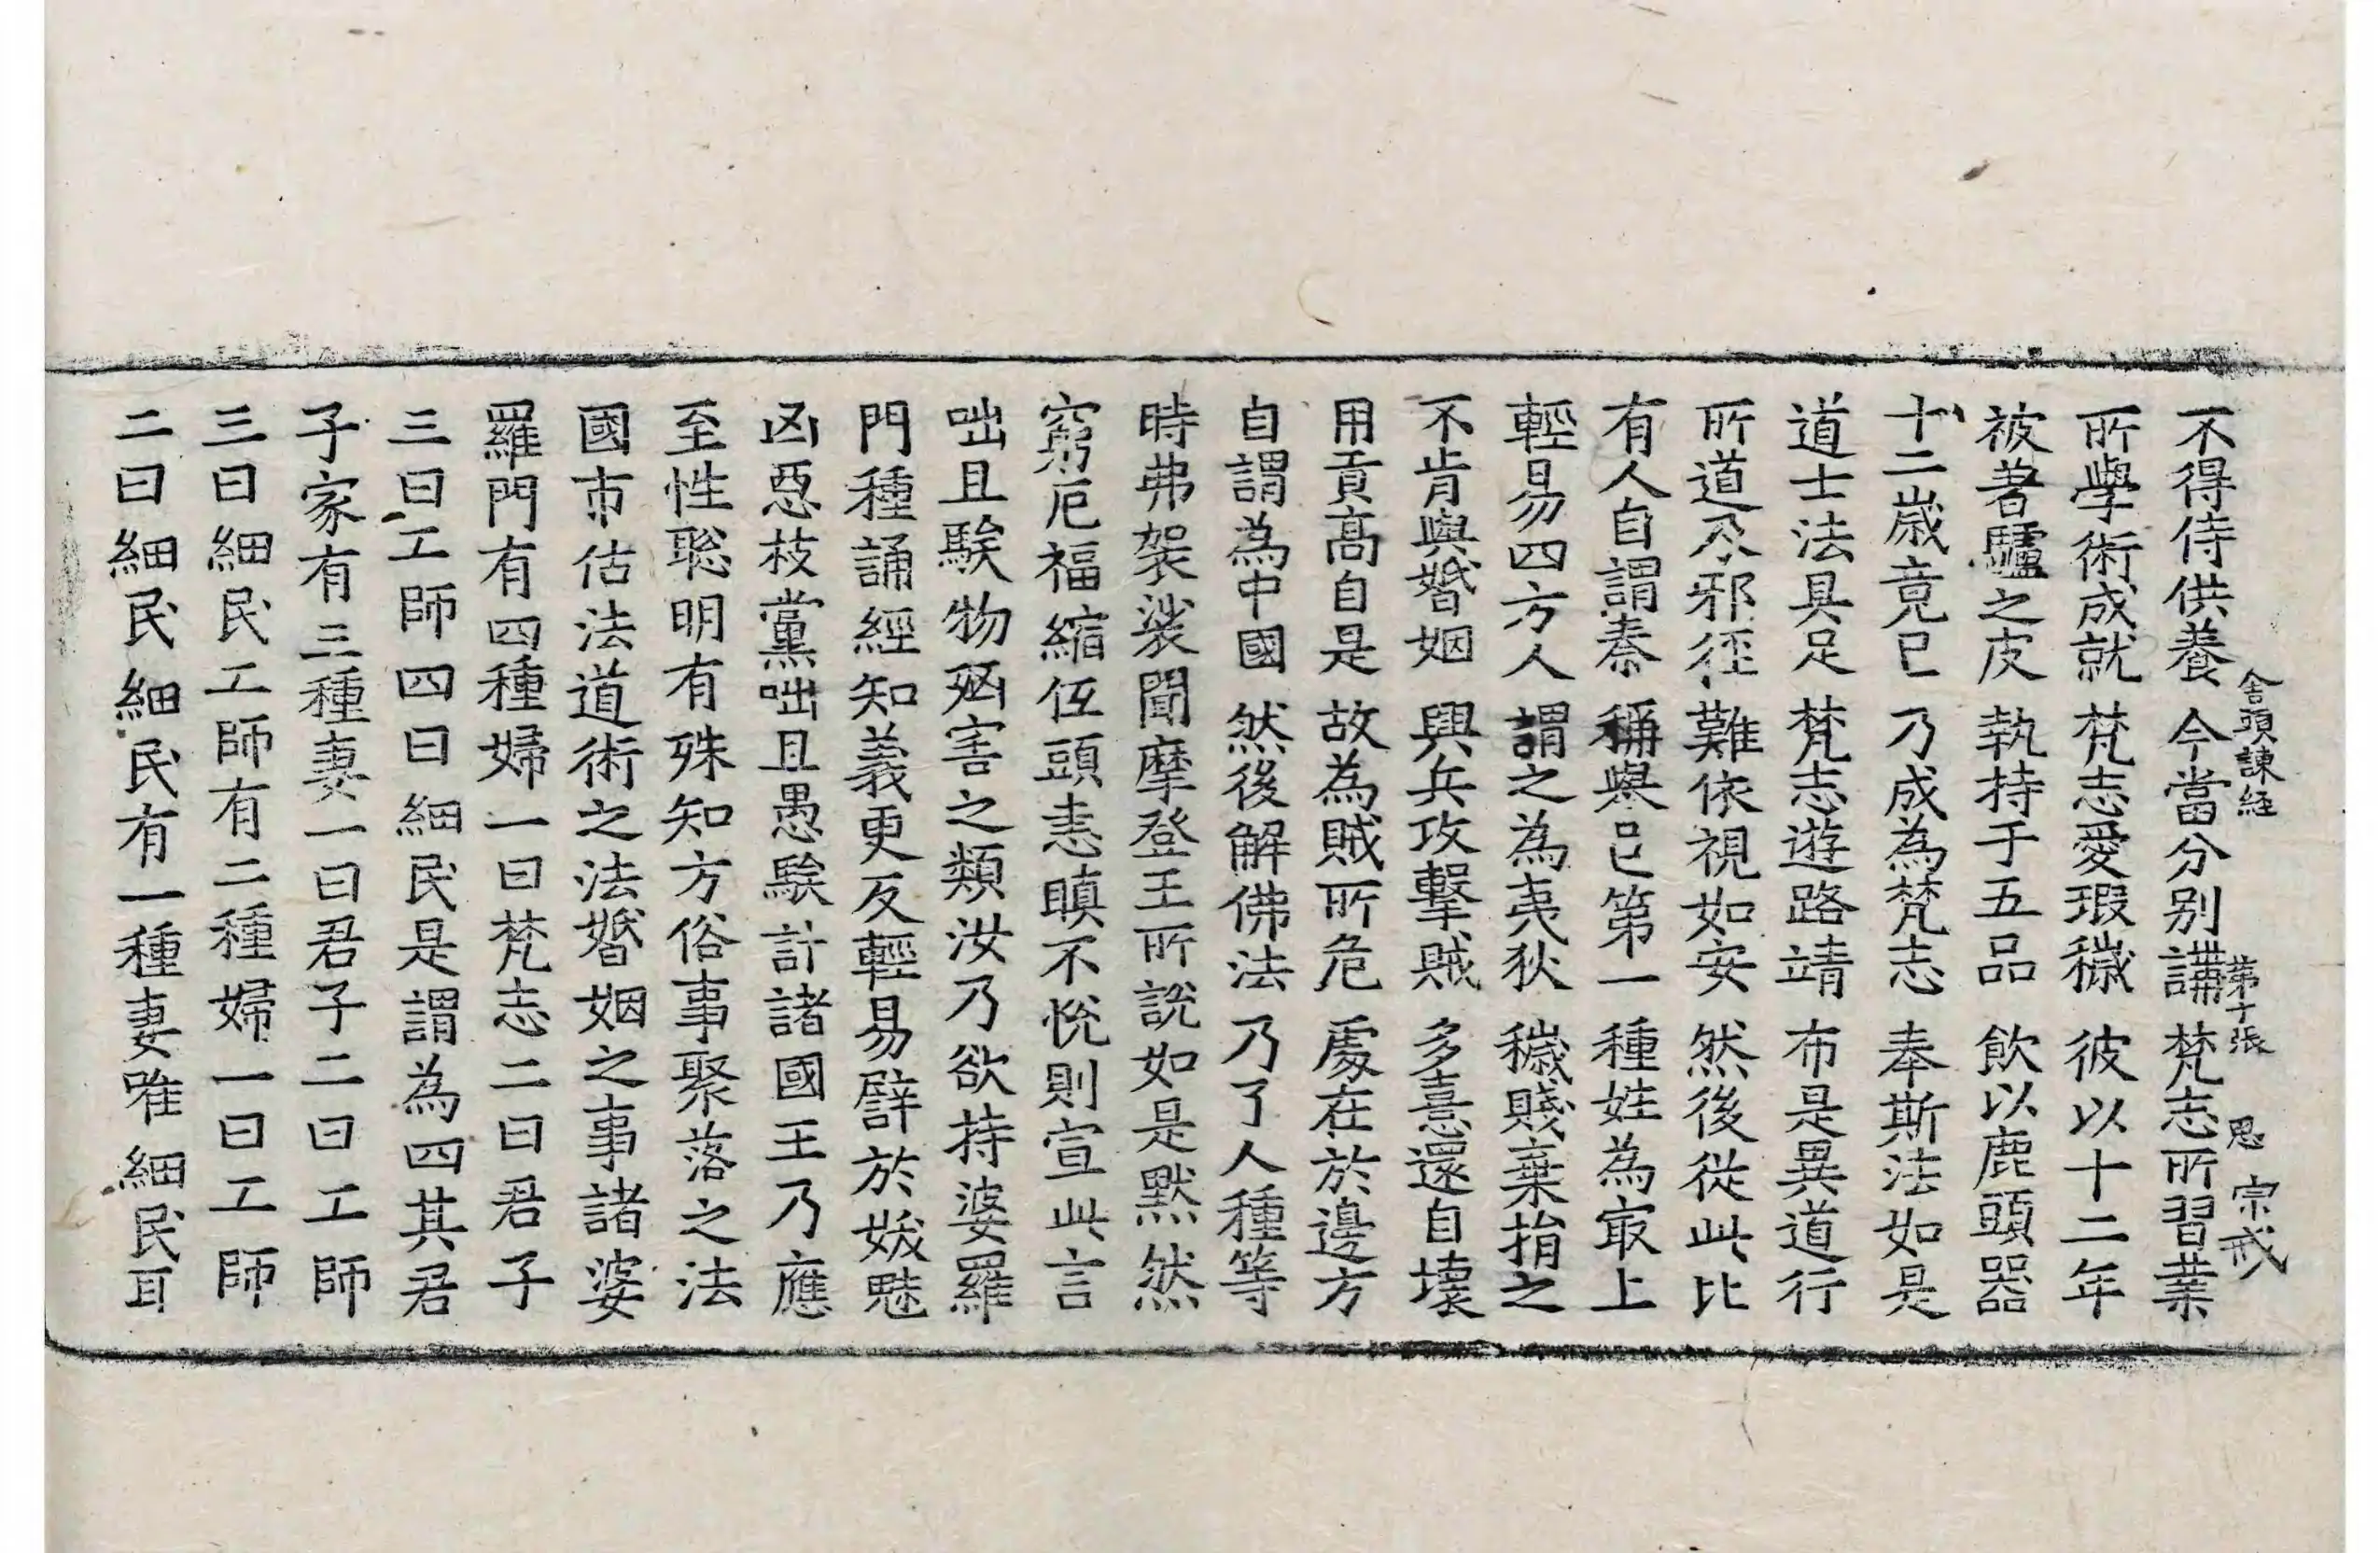 舍頭諫経 第十張 思 宗戒
不得侍供養 今當分別講 梵志所習業
所學術成就 梵志愛瑕穢 彼以十二年
被著驢之皮 執持于五品 飲以鹿頭器
十二歲竟已 乃成為梵志 奉斯法如是
道士法具足 梵志遊路靖 布是異道行
所道乃邪徑 難依視如安 然後從此比
有人自謂奏 稱舉已第一 種姓為最上
輕易四方人 謂之為夷狄 穢賤棄捐之
不肯與婚姻 興兵攻擊賊 多憙還自壞
用貢高自是 故為賊所危 處在於邊方
自謂為中國 然後解佛法 乃了人種等
時弗袈裟聞摩登王所說如是默然
窮厄福縮伍頭恚瞋不悅則宣此言
咄且騃物兇害之類汝乃欲持婆羅
門種誦經知義更反輕易譬於妭魅
凶惡枝黨咄且愚騃計諸國王乃應
至性聡明有殊知方俗事聚落之法
國市估法道術之法婚姻之事諸婆
羅門有四種婦一曰梵志二曰君子
三曰工師四曰細民是謂為四其君
子家有三種妻一曰君子二曰工師
三曰細民工師有二種婦一曰工師
二曰細民細民有一種妻唯細民耳